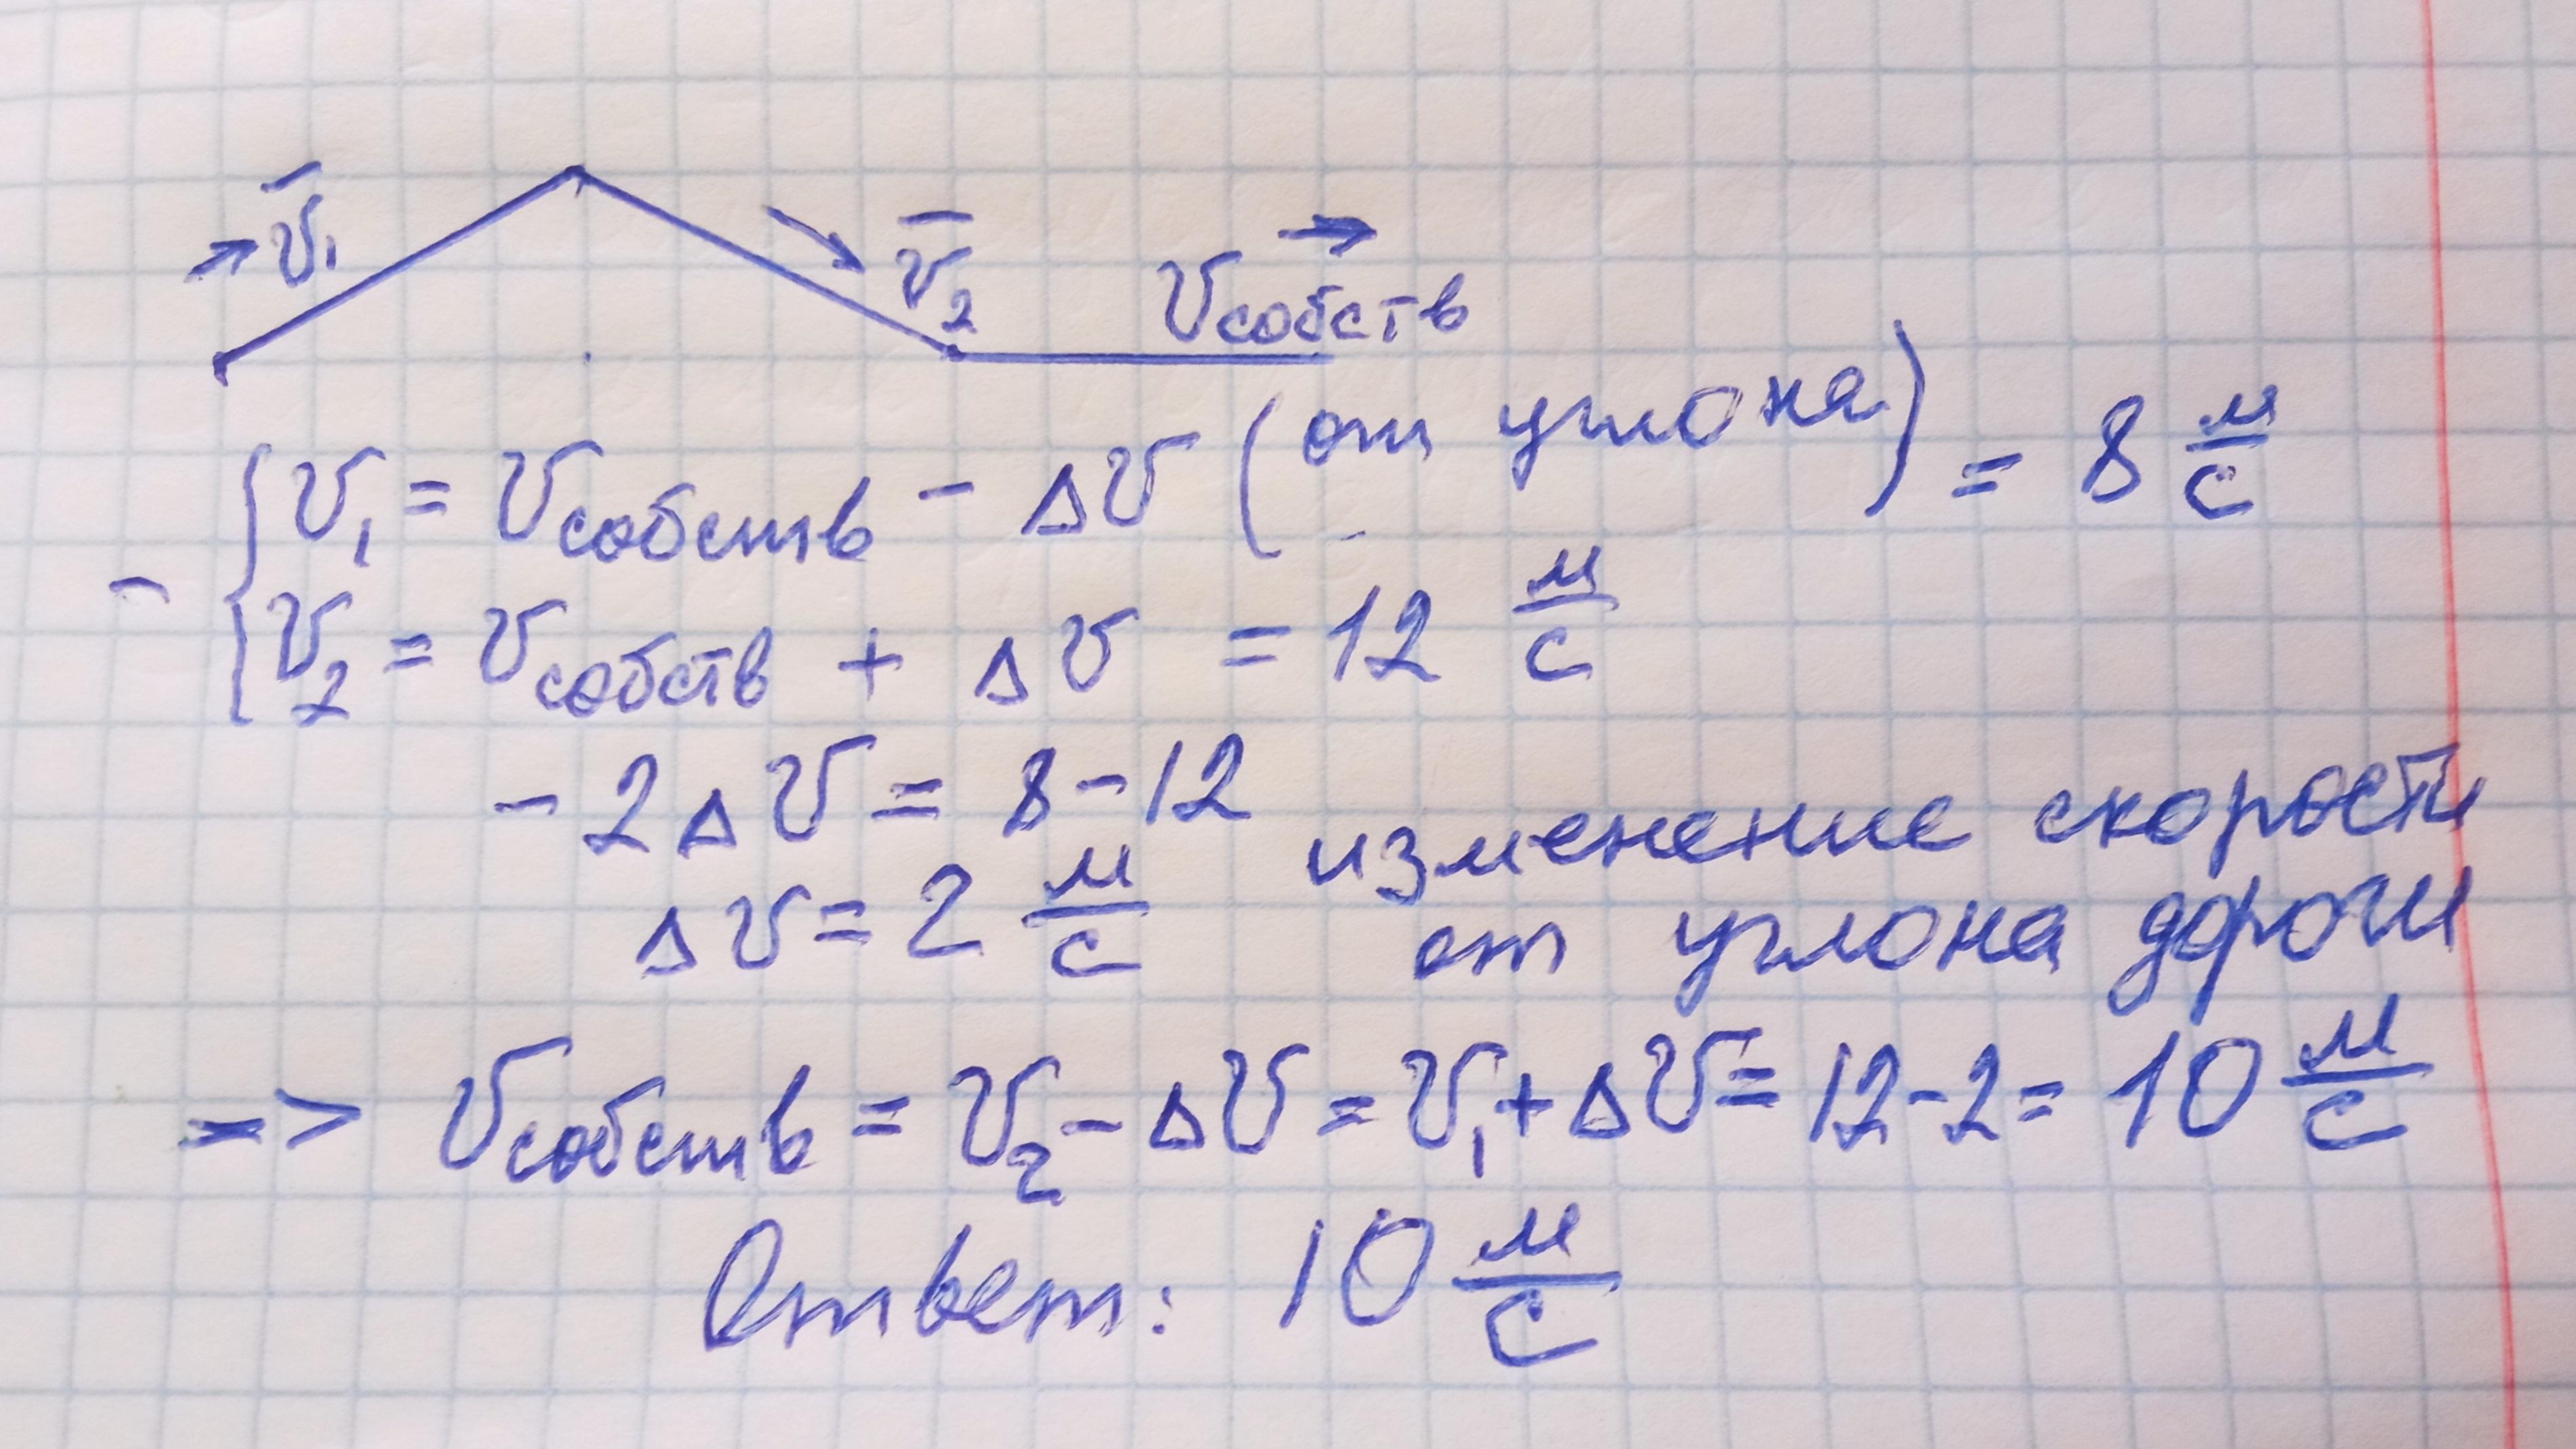 v̄₁ v̄₂ v собств
v₁ = v собств - Δv (от уклона) = 8 м/с
- v₂ = v собств + Δv = 12 м/с
-2Δv = 8-12
Δv = 2 м/с изменение скорости
от уклона дороги
=> v собств = v₂ - Δv = v₁ + Δv = 12-2 = 10 м/с
Ответ: 10 м/с